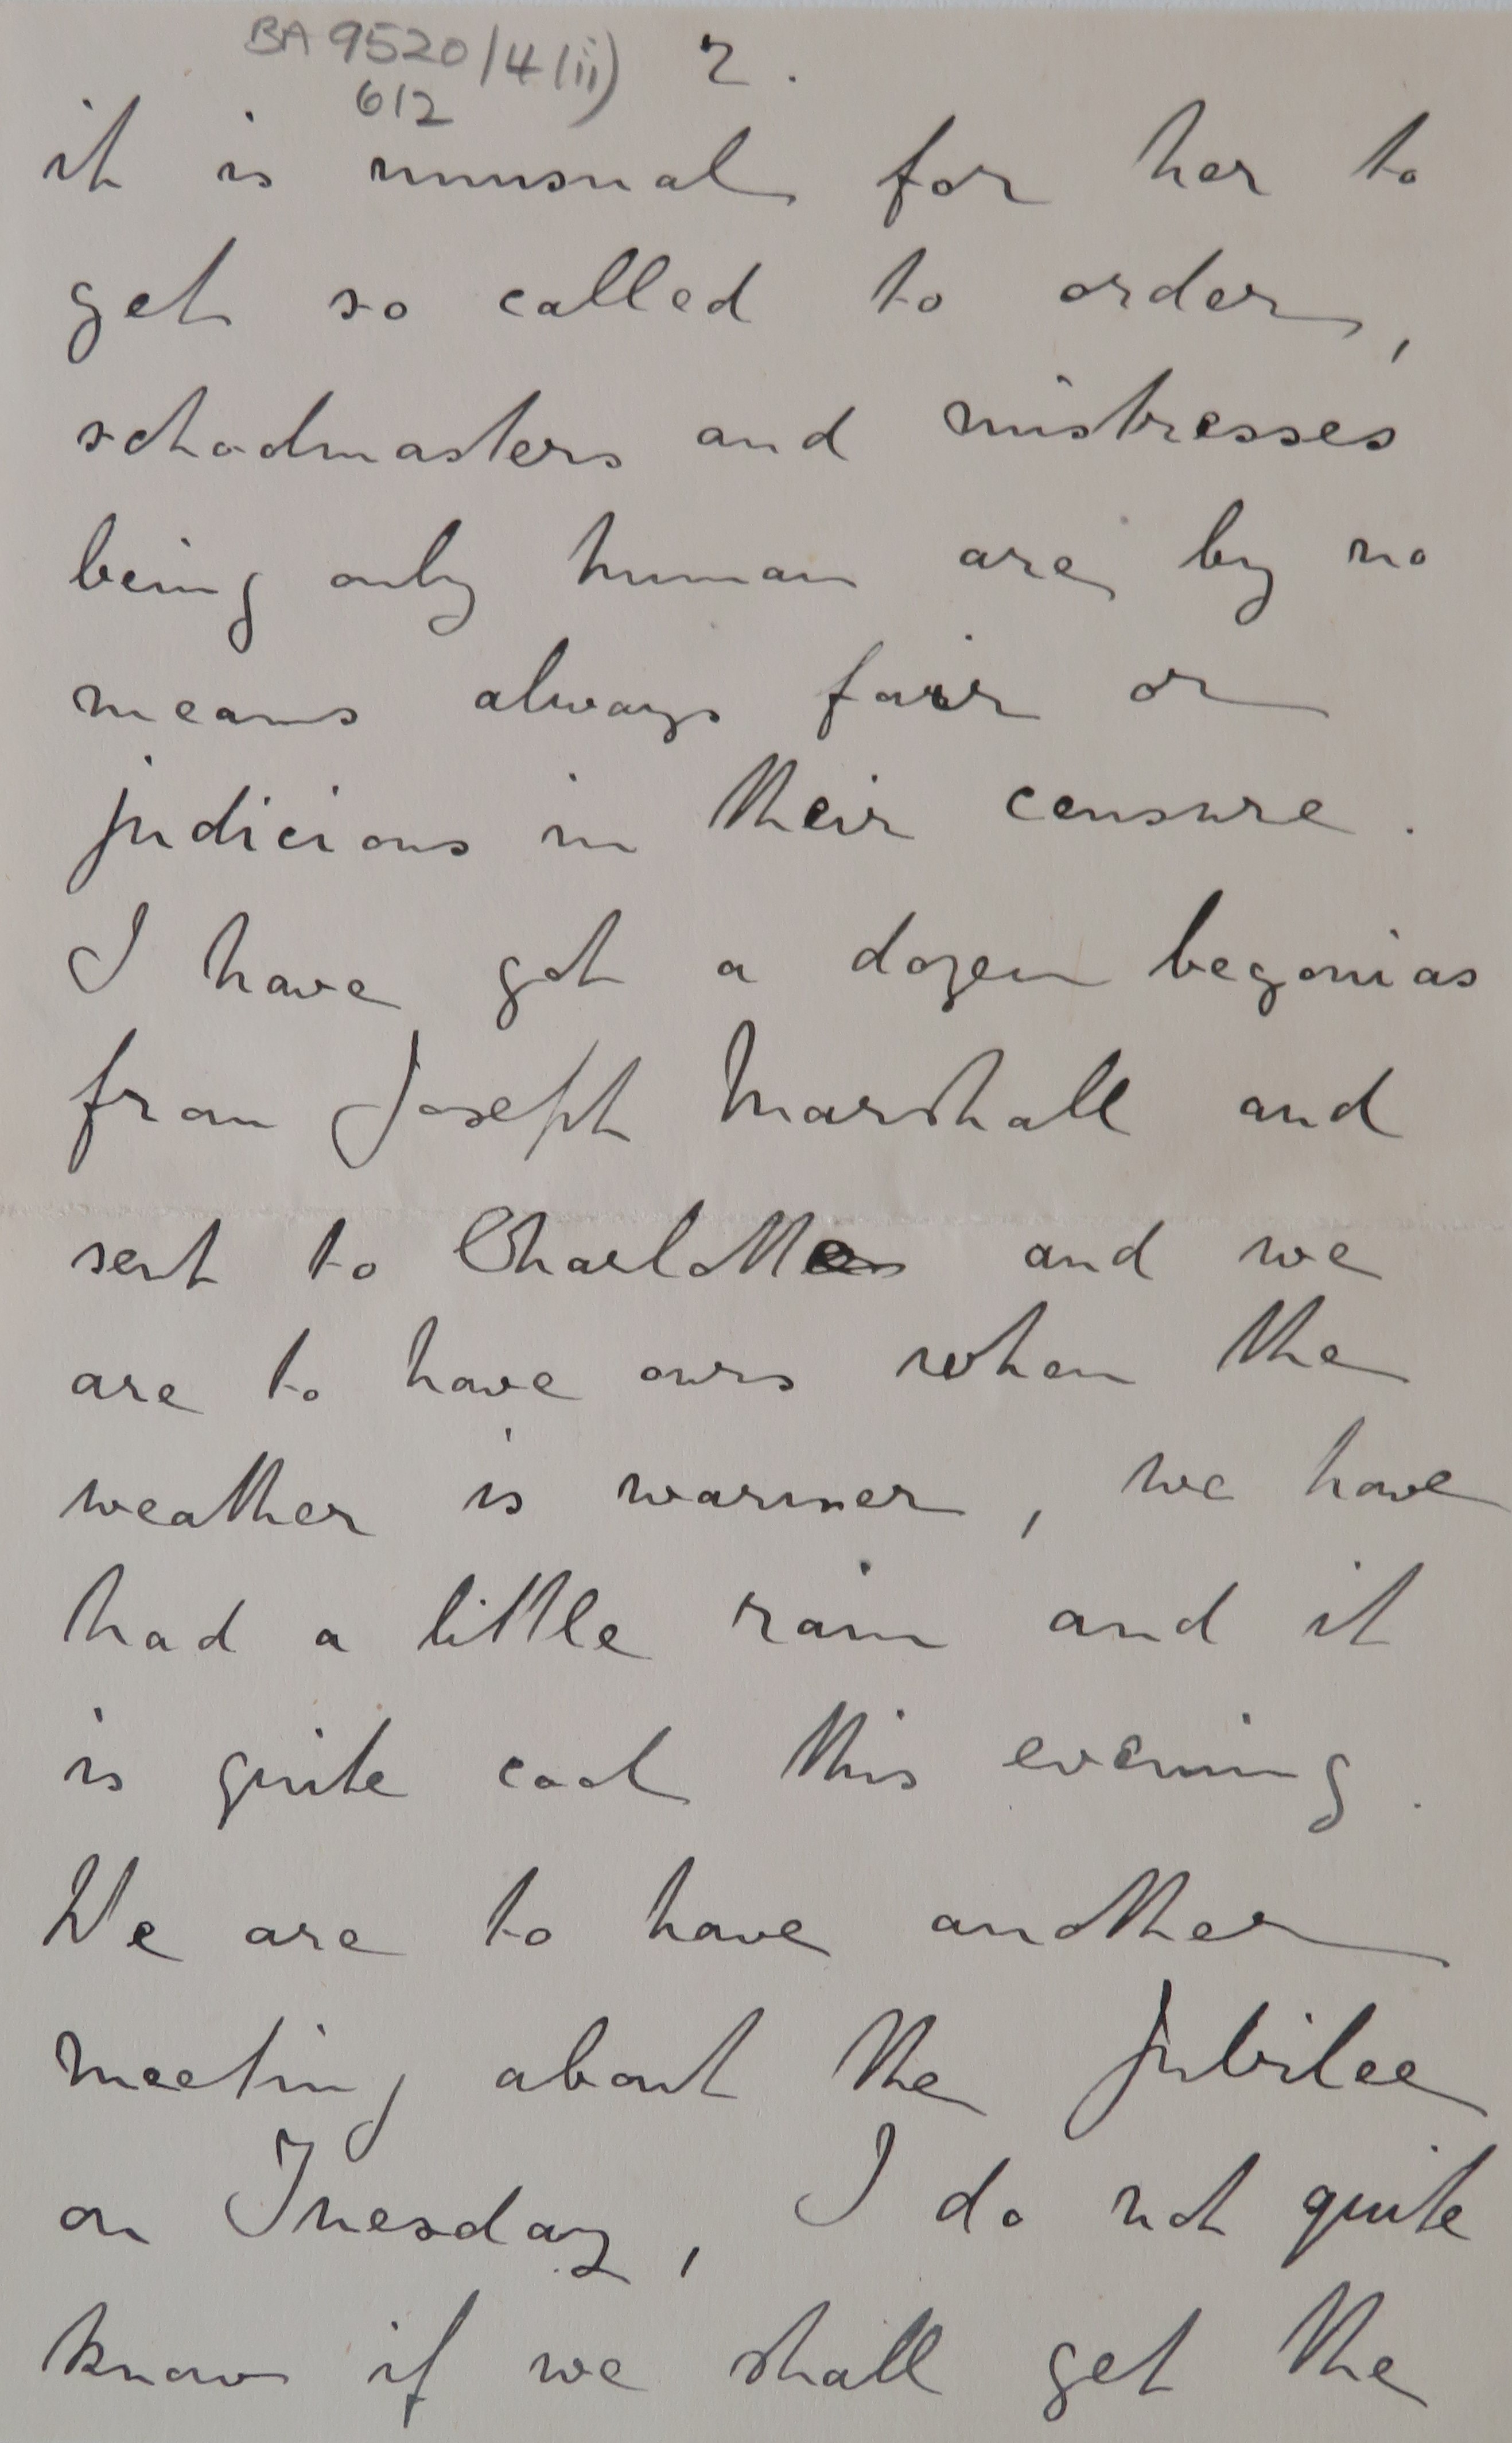 BA 9520/4(ii) 2.
612
it is unusual for her to
get so called to order,
schoolmasters and mistresses
being only human are by no
means always fair or
judicious in their censure.
I have got a dozen begonias
from Joseph Marshall and
sent to Charlotte and we
are to have ours when the
weather is warmer, we have
had a little rain and it
is quite cool this evening.
We are to have another
meeting about the Jubilee
on Tuesday, I do not quite
know if we shall get the